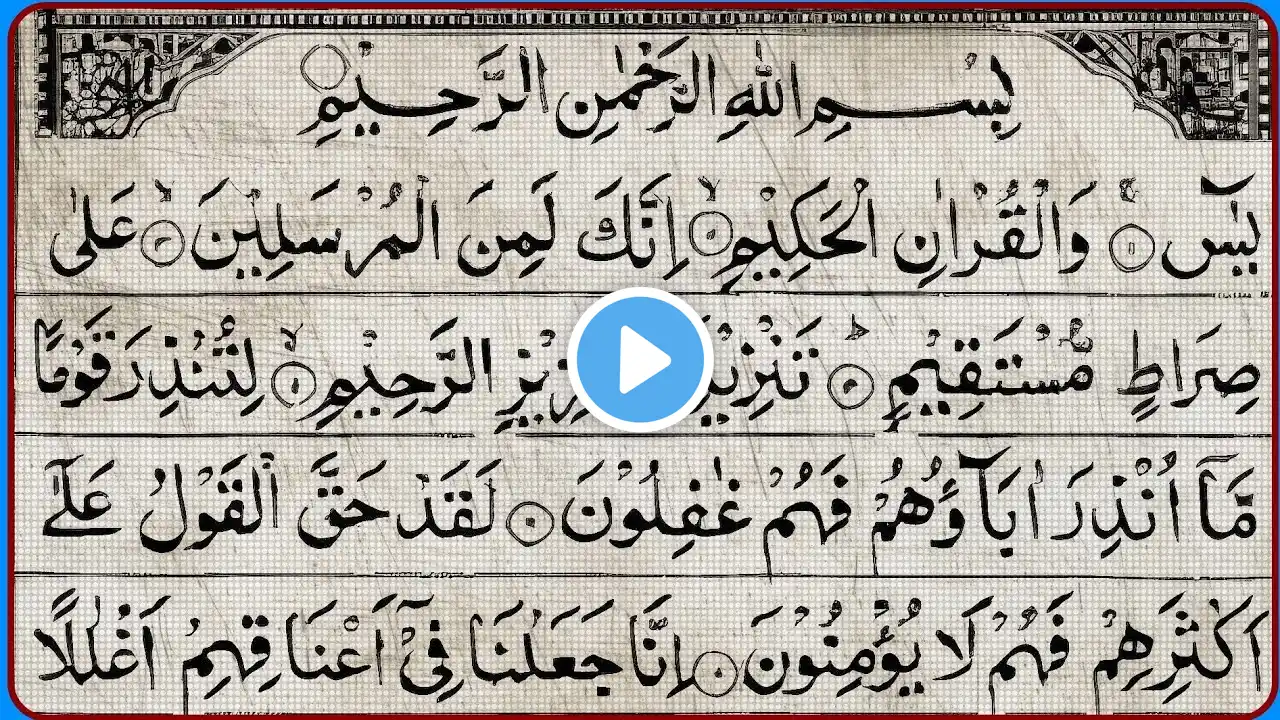 بِسْمِ اللّٰهِ الرَّحْمٰنِ الرَّحِيْمِ
يٰسٓ ١ وَالْقُرْاٰنِ الْحَكِيْمِ اِنَّكَ لَمِنَ الْمُرْسَلِيْنَ عَلٰى
صِرَاطٍ مُّسْتَقِيْمٍ تَنْزِيْ زِيْزِ الرَّحِيْمِ لِتُنْذِرَ قَوْمًا
مَّاۤ اُنْذِرَ اٰبَآؤُهُمْ فَهُمْ غٰفِلُوْنَ لَقَدْ حَقَّ الْقَوْلُ عَلٰٓى
اَكْثَرِهِمْ فَهُمْ لَا يُؤْمِنُوْنَ اِنَّا جَعَلْنَا فِيْۤ اَعْنَاقِهِمْ اَغْلٰلًا